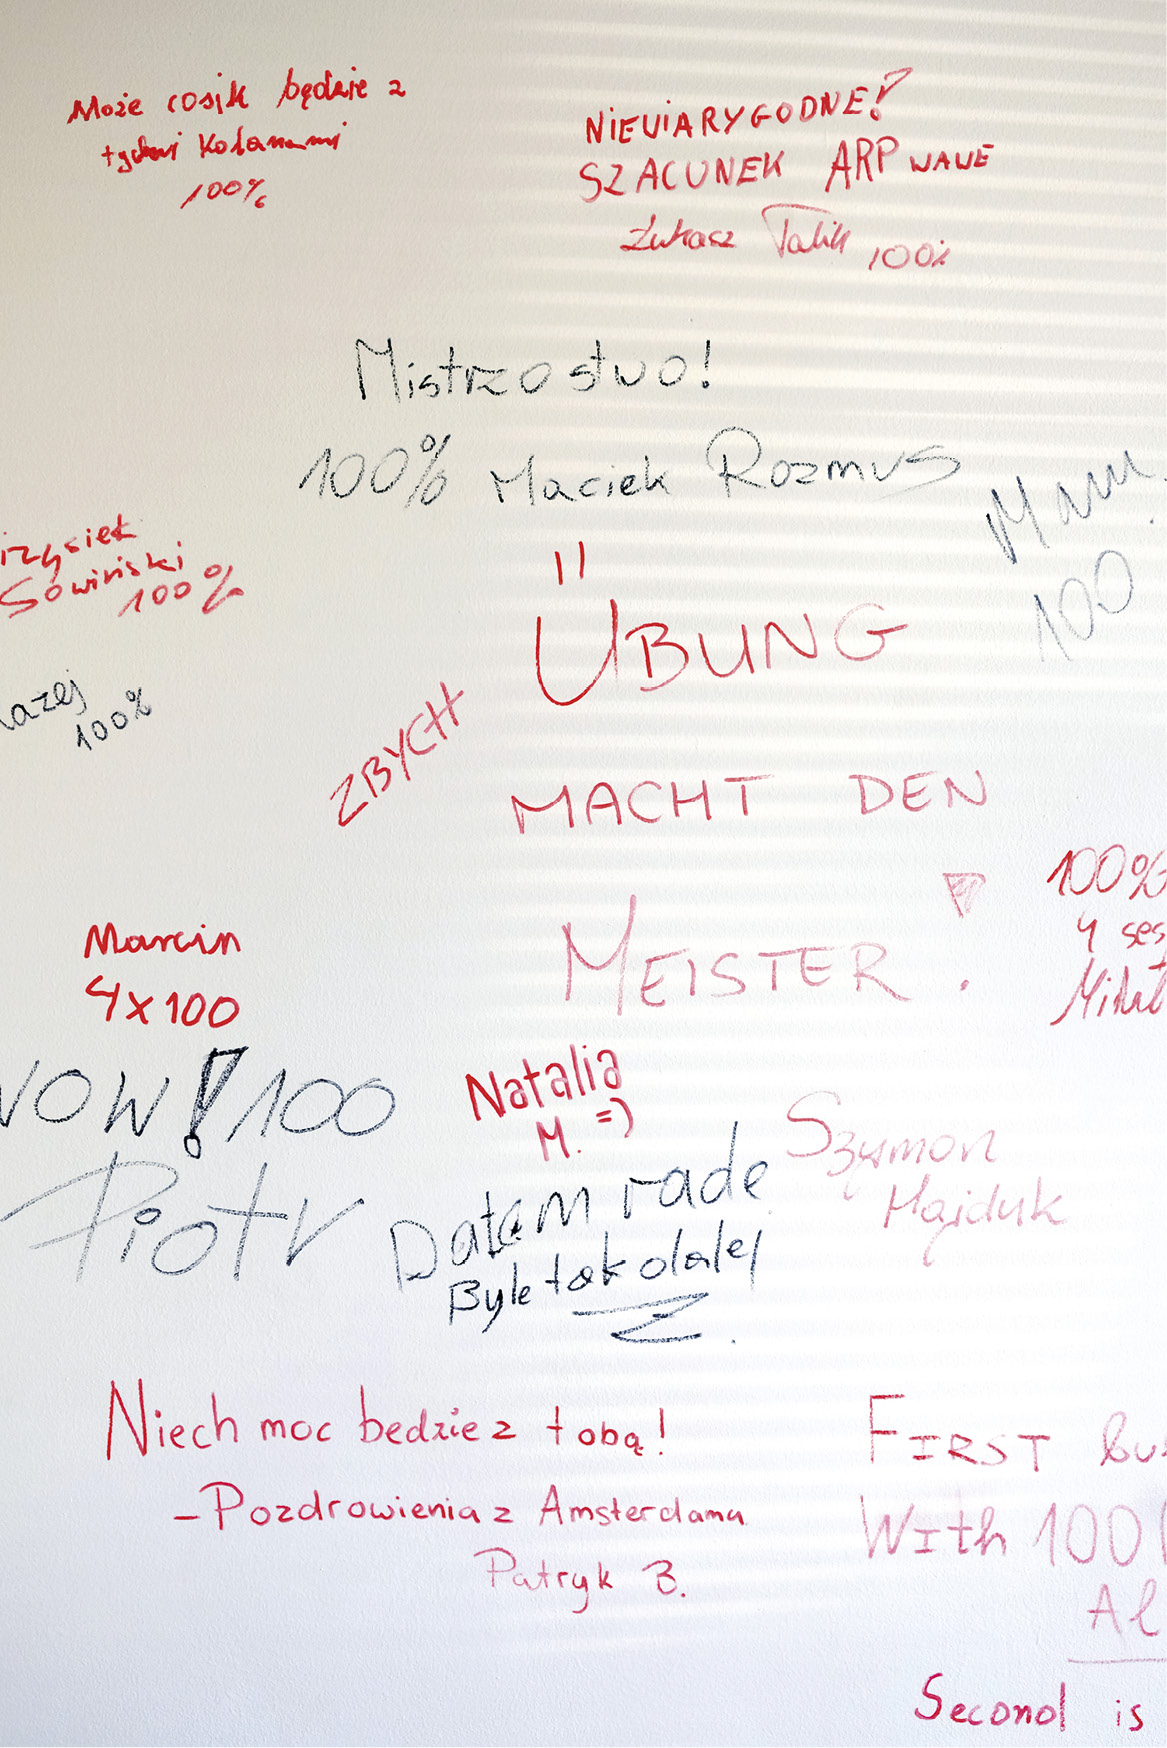 Może cosik będzie z
tychmi kolanami
100%
NIEVIARYGODNE!
SZACUNEK ARP WAWE
Łukasz Talik 100%
Mistrzostwo!
100% Maciek Rozmus
100
Sowiński
100%
100%
ÜBUNG
ZBYCH
MACHT DEN
MEISTER.
100%
4 ses
Marcin
4x100
WOW! 100
Piotr
Natalia
M. =)
Szymon
Majduk
Dałem radę
Byle tak dalej
Niech moc będzie z tobą!
- Pozdrowienia z Amsterdamu
Patryk B.
FIRST
WITh 100
Al
Second is